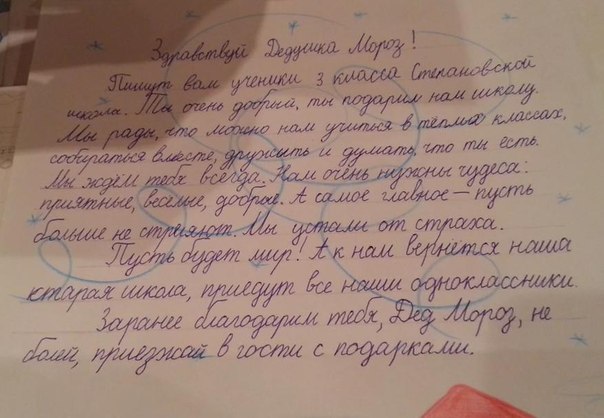 Здравствуй Дедушка Мороз!
Пишут вам ученики 3 класса Степановской
школы. Ты очень добрый, ты подарил нам школу.
Мы рады, что можно нам учиться в тёплых классах,
собираться вместе, дружить и думать, что ты есть.
Мы ждём тебя всегда. Нам очень нужны чудеса:
приятные, весёлые, добрые. А самое главное – пусть
больше не стреляют. Мы устали от страха.
Пусть будет мир! А к нам вернется наша
старая школа, приедут все наши одноклассники.
Заранее благодарим тебя, Дед Мороз, не
болей, приезжай в гости с подарками.